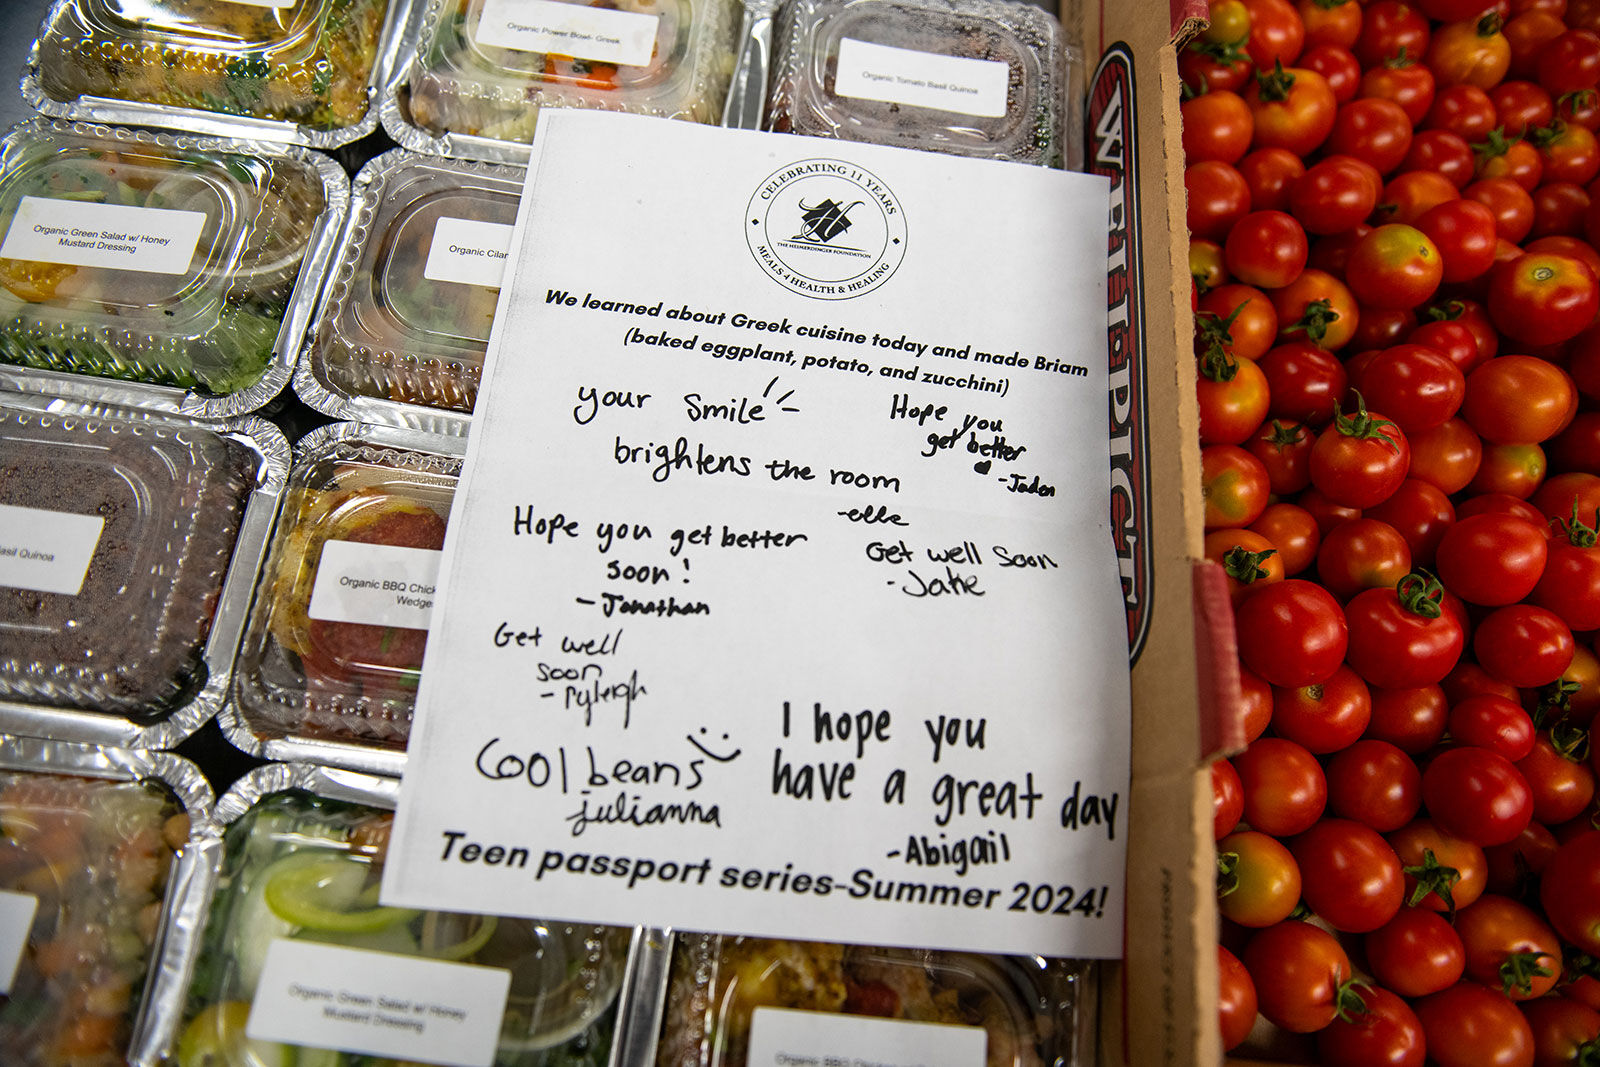 Organic Power Bowl- Greek
Organic Tomato Basil Quinoa
Organic Green Salad w/ Honey
Mustard Dressing
Organic
Basil Quinoa
Organic BBQ
CELEBRATING 11 YEARS
H
THE HEIMERDINGER FOUNDATION
MEALS 4 HEALTH & HEALING
We learned about Greek cuisine today and made Briam
(baked eggplant, potato, and zucchini)
your smile
brightens the room
-ella
Hope you
get better
-Jaden
Hope you get better
soon!
-Jonathan
Get well soon
-Jake
Get well
soon
-Ryleigh
Cool beans
julianna
I hope you
have a great day
-Abigail
Teen passport series-Summer 2024!
Organic Green Salad w/ Honey
Mustard Dressing
Organic BBQ